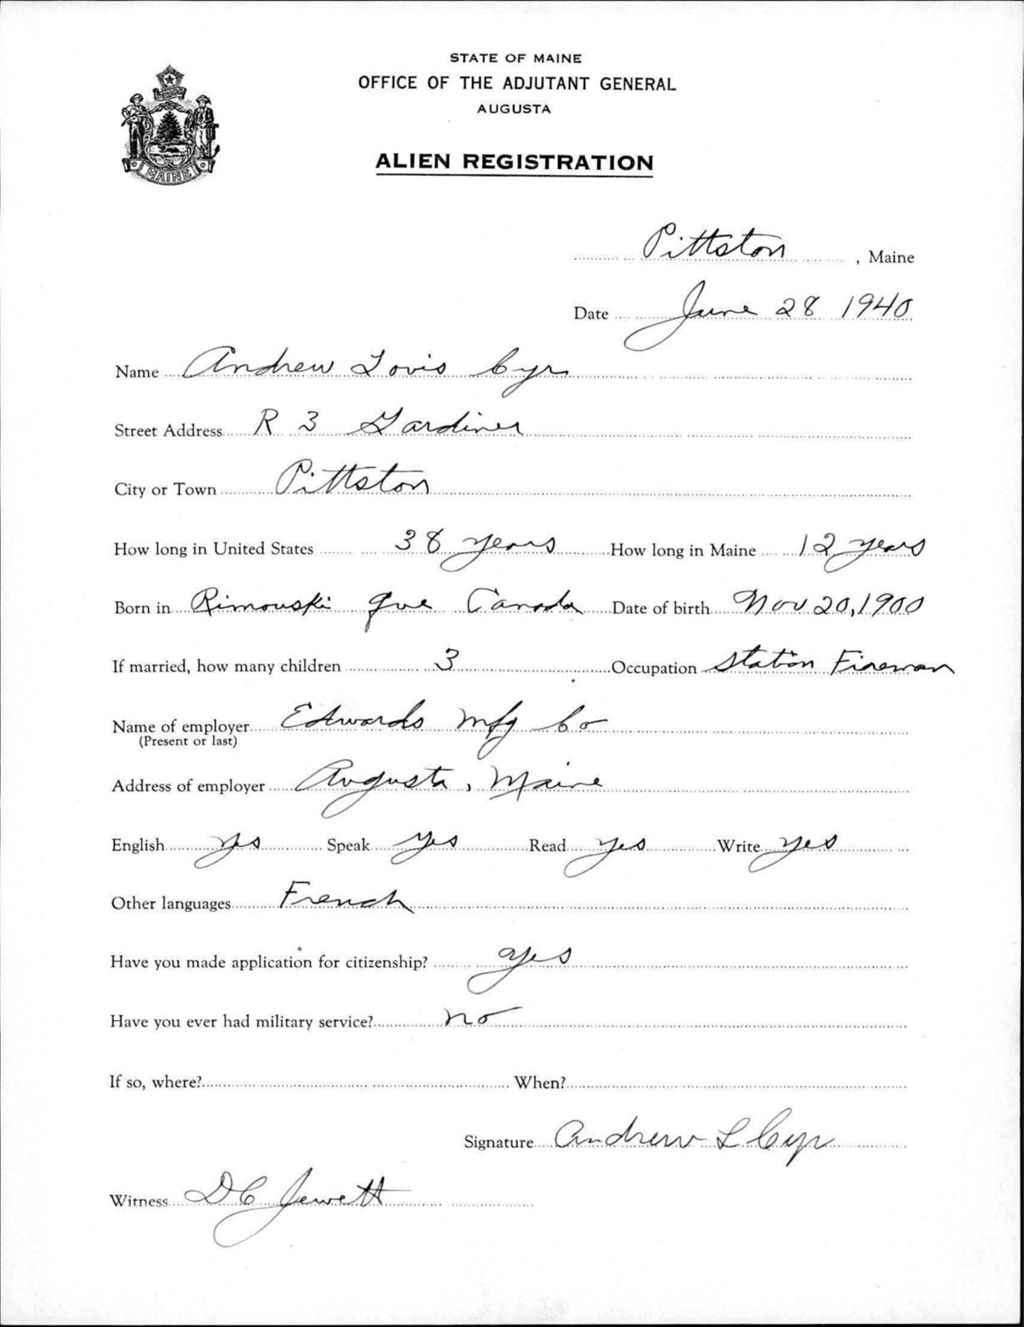 STATE OF MAINE
OFFICE OF THE ADJUTANT GENERAL
AUGUSTA
ALIEN REGISTRATION
MAINE
Pittston, Maine
Date June 28 1940
Name Andrew Lovis Cyr
Street Address R 3 Gardiner
City or Town Pittston
How long in United States 38 years How long in Maine 12 years
Born in Rimouski Que Canada Date of birth Nov 20, 1900
If married, how many children 3 Occupation Station Fireman
Name of employer Edwards Mfg Co
(Present or last)
Address of employer Augusta, Maine
English yes Speak yes Read yes Write yes
Other languages French
Have you made application for citizenship? yes
Have you ever had military service? no
If so, where? When?
Signature Andrew L Cyr
Witness D C Jewett